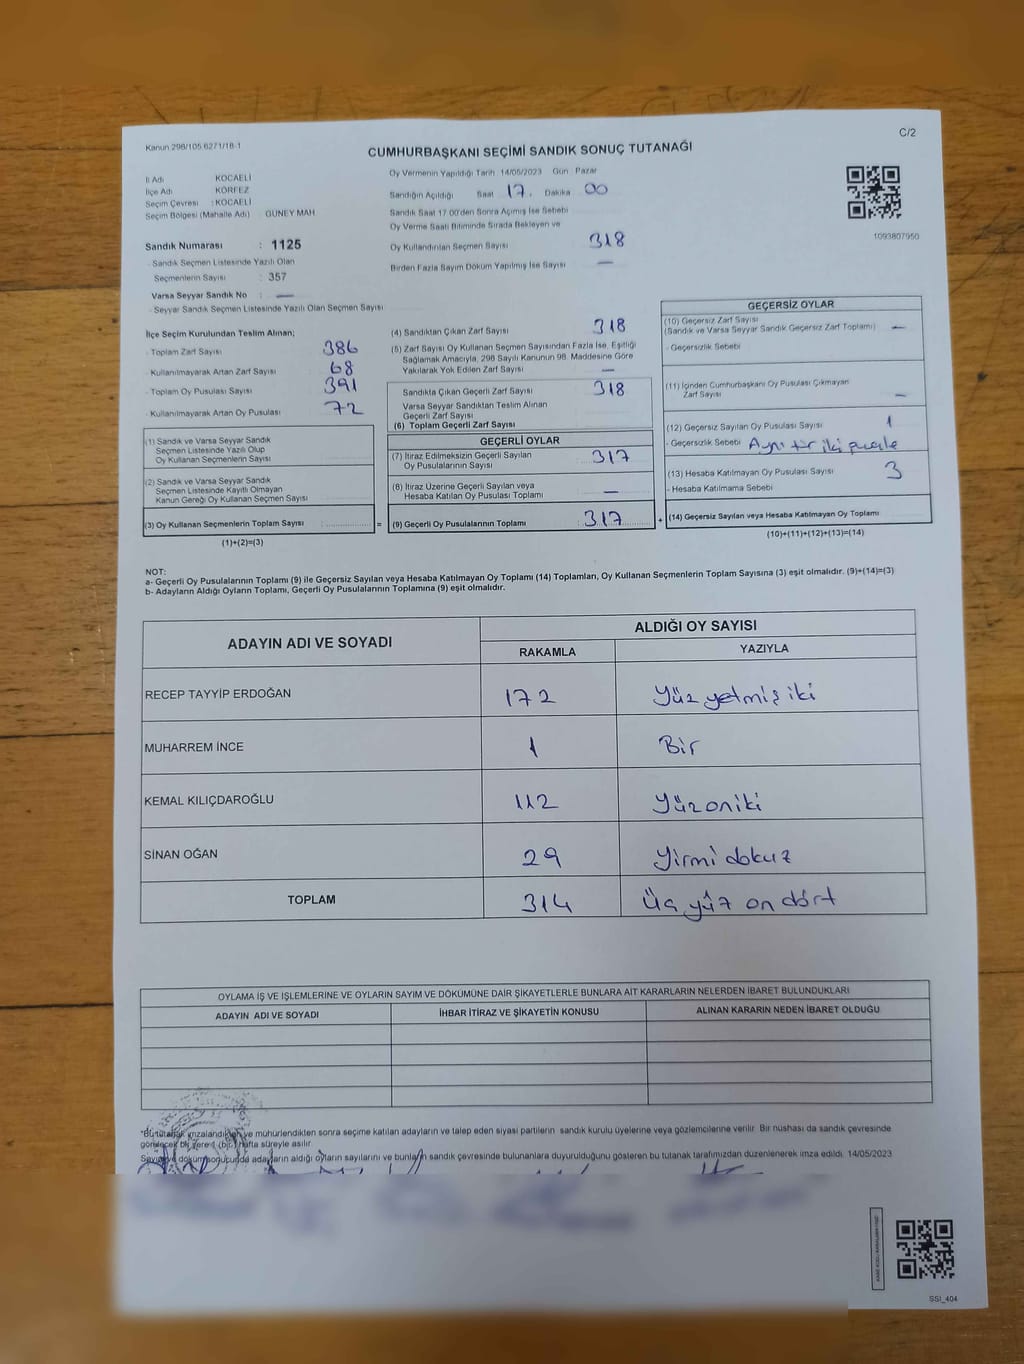 Kanun 298/105 6271/18-1
C/2
CUMHURBAŞKANI SEÇİMİ SANDIK SONUÇ TUTANAĞI
İl Adı KOCAELİ
İlçe Adı KÖRFEZ
Seçim Çevresi : KOCAELİ
Seçim Bölgesi (Mahalle Adı) GÜNEY MAH
Sandık Numarası : 1125
- Sandık Seçmen Listesinde Yazılı Olan
Seçmenlerin Sayısı : 357
Varsa Seyyar Sandık No : —
- Seyyar Sandık Seçmen Listesinde Yazılı Olan Seçmen Sayısı
Oy Vermenin Yapıldığı Tarih 14/05/2023 Gün Pazar
Sandığın Açıldığı Saat 17. Dakika 00
Sandık Saat 17 00'den Sonra Açılmış İse Sebebi
Oy Verme Saati Bitiminde Sırada Bekleyen ve
Oy Kullandırılan Seçmen Sayısı 318
Birden Fazla Sayım Döküm Yapılmış İse Sayısı —
1093807950
İlçe Seçim Kurulundan Teslim Alınan;
- Toplam Zarf Sayısı 386
- Kullanılmayarak Artan Zarf Sayısı 68
- Toplam Oy Pusulası Sayısı 391
- Kullanılmayarak Artan Oy Pusulası 72
(1) Sandık ve Varsa Seyyar Sandık
Seçmen Listesinde Yazılı Olup
Oy Kullanan Seçmenlerin Sayısı
(2) Sandık ve Varsa Seyyar Sandık
Seçmen Listesinde Kayıtlı Olmayan
Kanun Gereği Oy Kullanan Seçmen Sayısı
(3) Oy Kullanan Seçmenlerin Toplam Sayısı : =
(1)+(2)=(3)
(4) Sandıktan Çıkan Zarf Sayısı 318
(5) Zarf Sayısı Oy Kullanan Seçmen Sayısından Fazla İse, Eşitliği
Sağlamak Amacıyla, 298 Sayılı Kanunun 98. Maddesine Göre
Yakılarak Yok Edilen Zarf Sayısı —
Sandıkta Çıkan Geçerli Zarf Sayısı 318
Varsa Seyyar Sandıktan Teslim Alınan
Geçerli Zarf Sayısı
(6) Toplam Geçerli Zarf Sayısı
GEÇERLİ OYLAR
(7) İtiraz Edilmeksizin Geçerli Sayılan
Oy Pusulalarının Sayısı 317
(8) İtiraz Üzerine Geçerli Sayılan veya
Hesaba Katılan Oy Pusulası Toplamı —
(9) Geçerli Oy Pusulalarının Toplamı : 317 +
GEÇERSİZ OYLAR
(10) Geçersiz Zarf Sayısı
(Sandık ve Varsa Seyyar Sandık Geçersiz Zarf Toplamı) —
- Geçersizlik Sebebi
(11) İçinden Cumhurbaşkanı Oy Pusulası Çıkmayan
Zarf Sayısı —
(12) Geçersiz Sayılan Oy Pusulası Sayısı 1
- Geçersizlik Sebebi Ayrı iki
(13) Hesaba Katılmayan Oy Pusulası Sayısı 3
- Hesaba Katılmama Sebebi
(14) Geçersiz Sayılan veya Hesaba Katılmayan Oy Toplamı
(10)+(11)+(12)+(13)=(14)
NOT:
a- Geçerli Oy Pusulalarının Toplamı (9) ile Geçersiz Sayılan veya Hesaba Katılmayan Oy Toplamı (14) Toplamları, Oy Kullanan Seçmenlerin Toplam Sayısına (3) eşit olmalıdır. (9)+(14)=(3)
b- Adayların Aldığı Oyların Toplamı, Geçerli Oy Pusulalarının Toplamına (9) eşit olmalıdır.
ADAYIN ADI VE SOYADI
ALDIĞI OY SAYISI
RAKAMLA YAZIYLA
RECEP TAYYİP ERDOĞAN 172 Yüz yetmiş iki
MUHARREM İNCE 1 Bir
KEMAL KILIÇDAROĞLU 112 Yüz oniki
SİNAN OĞAN 29 Yirmi dokuz
TOPLAM 314 Üç yüz on dört
OYLAMA İŞ VE İŞLEMLERİNE VE OYLARIN SAYIM VE DÖKÜMÜNE DAİR ŞİKAYETLERLE BUNLARA AİT KARARLARIN NELERDEN İBARET BULUNDUKLARI
ADAYIN ADI VE SOYADI İHBAR İTİRAZ VE ŞİKAYETİN KONUSU ALINAN KARARIN NEDEN İBARET OLDUĞU
*Bu tutanak, imzalandıktan ve mühürlendikten sonra seçime katılan adayların ve talep eden siyasi partilerin sandık kurulu üyelerine veya gözlemcilerine verilir. Bir nüshası da sandık çevresinde
görülecek bir yere 1 (bir) hafta süreyle asılır.
Sayım ve döküm sonucunda adayların aldığı oyların sayılarını ve bunların sandık çevresinde bulunanlara duyurulduğunu gösteren bu tutanak tarafımızdan düzenlenerek imza edildi. 14/05/2023
SSI_404